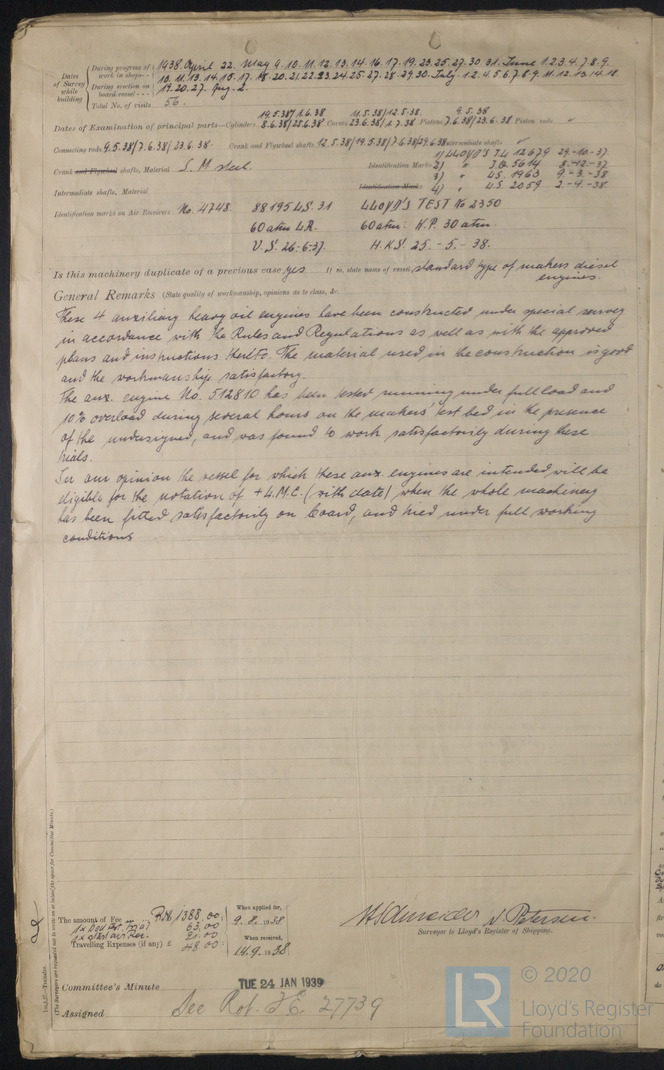 Dates of Survey while building
During progress of work in shops - - 1938. April 22. May 9. 10. 11. 12. 13. 14. 16. 17. 19. 23. 25. 27. 30 31. June 1. 2. 3. 4. 7. 8. 9.
10. 11. 13. 14. 15. 17. 18. 20. 21. 22. 23. 24. 25. 27. 28. 29. 30. July 1. 2. 4. 5. 6. 7. 8. 9. 11. 12. 13. 14. 18.
During erection on board vessel - - - 19. 20. 27. Aug. 2.
Total No. of visits 56.
Dates of Examination of principal parts—Cylinders 19.5.38/1.6.38 8.6.38/25.6.38 Covers 11.5.38/12.5.38 23.6.38/1.7.38 Pistons 9.5.38 7.6.38/23.6.38 Piston rods "
Connecting rods 9.5.38/7.6.38/23.6.38. Crank and Flywheel shafts 12.5.38/19.5.38/7.6.38/29.6.38 Intermediate shafts "
Crank and Flywheel shafts, Material S. M steel. Identification Marks 1) LLOYD'S T.L 12679 29-10-37
2) " J.Q. 5614 8-12-37
3) " U.S. 1963 9-3-38
Intermediate shafts, Material Identification Marks 4) " U.S. 2059 2-4-38
Identification marks on Air Receivers No. 4748. 88195 L S. 31 LLOYD'S TEST No 2350
60 atm L.R. 60 atm. W.P. 30 atm.
V.S. 26-6-37. H.K.S. 25-5-38.
Is this machinery duplicate of a previous case yes If so, state name of vessel standard type of makers diesel
engines.
General Remarks (State quality of workmanship, opinions as to class, &c.
These 4 auxiliary heavy oil engines have been constructed under special survey
in accordance with the Rules and Regulations as well as with the approved
plans and instructions thereto. The material used in the construction is good
and the workmanship satisfactory.
The aux. engine No. 512810 has been tested running under full load and
10% overload during several hours on the makers' test bed in the presence
of the undersigned, and was found to work satisfactorily during these
trials.
In our opinion the vessel for which these aux. engines are intended will be
eligible for the notation of + L.M.C. (with date) when the whole machinery
has been fitted satisfactorily on board, and tried under full working
conditions
The amount of Fee RM 1388.00.
63.00
21.00
Travelling Expenses (if any) £ 48.00.
When applied for, 9. 8. 1938
When received, 14.9. 1938
H Schneider N. Petersen.
Surveyor to Lloyd's Register of Shipping.
Committee's Minute TUE 24 JAN 1939
Assigned See Rot. F.E. 27739
© 2020
LR
Lloyd's Register
Foundation